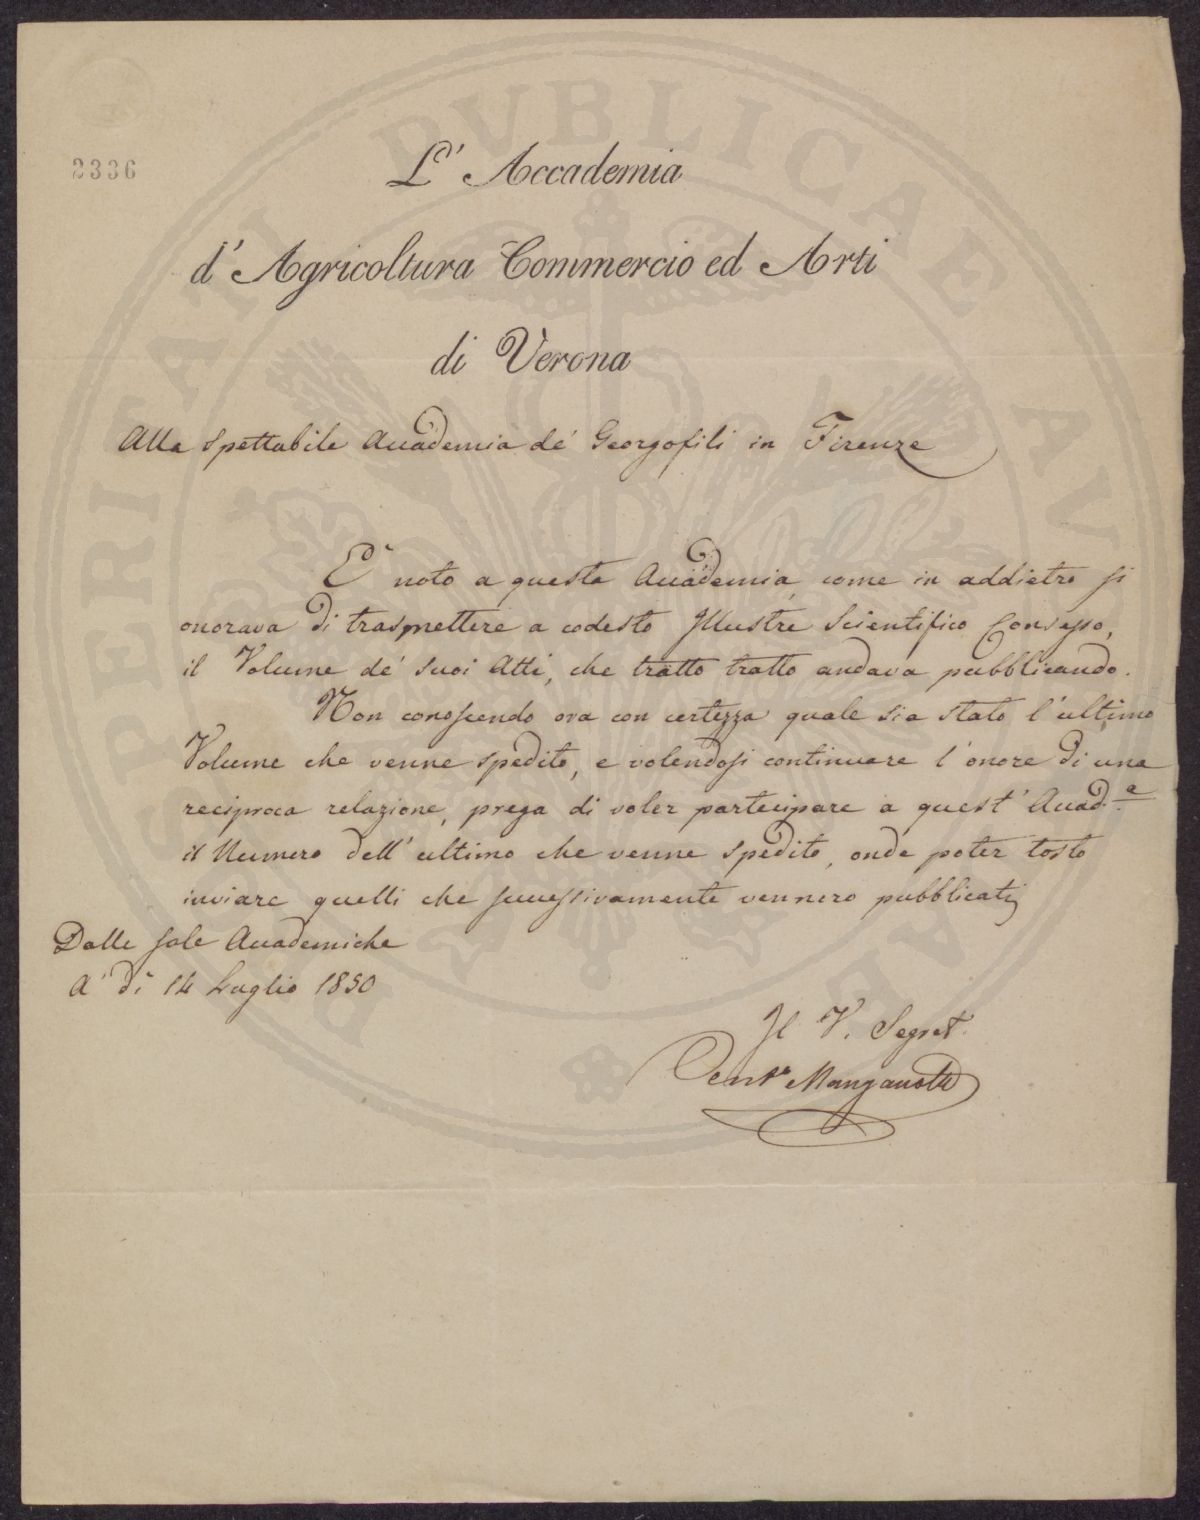 2336
L' Accademia
d' Agricoltura Commercio ed Arti
di Verona
Alla Spettabile Accademia de' Georgofili in Firenze
E' noto a questa Accademia, come in addietro si
onorava di trasmettere a codesto Illustre Scientifico Consesso,
il Volume de' suoi Atti, che tratto tratto andava pubblicando.
Non conoscendo ora con certezza quale sia stato l'ultimo
Volume che venne spedito, e volendosi continuare l'onore di una
reciproca relazione, prega di voler partecipare a quest' Accad.a
il Numero dell' ultimo che venne spedito, onde poter tosto
inviare quelli che successivamente vennero pubblicati
Dalle sale Accademiche
A' dì 14 Luglio 1850
Il V. Segret.
Manganotti
PROSPERITATI PVBLICAE AVGENDAE